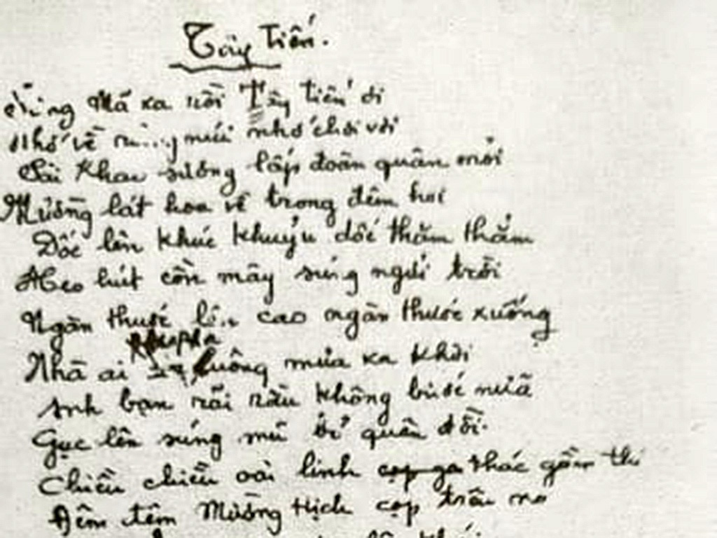 Tây Tiến.
Sông Mã xa rồi Tây tiến ơi
Nhớ về núi nhớ chơi vơi
Sài Khao sương lấp đoàn quân mỏi
Mường lát hoa về trong đêm hơi
Dốc lên khúc khuỷu dốc thăm thẳm
Heo hút cồn mây súng ngửi trời
Ngàn thước lên cao ngàn thước xuống
Nhà ai luông mưa xa khơi
Anh bạn rãi rầu không bước nữa
Gục lên súng mũ quên đời.
Chiều chiều oai linh thác gầm thé
Đêm đêm Mường Hịch cọp trêu